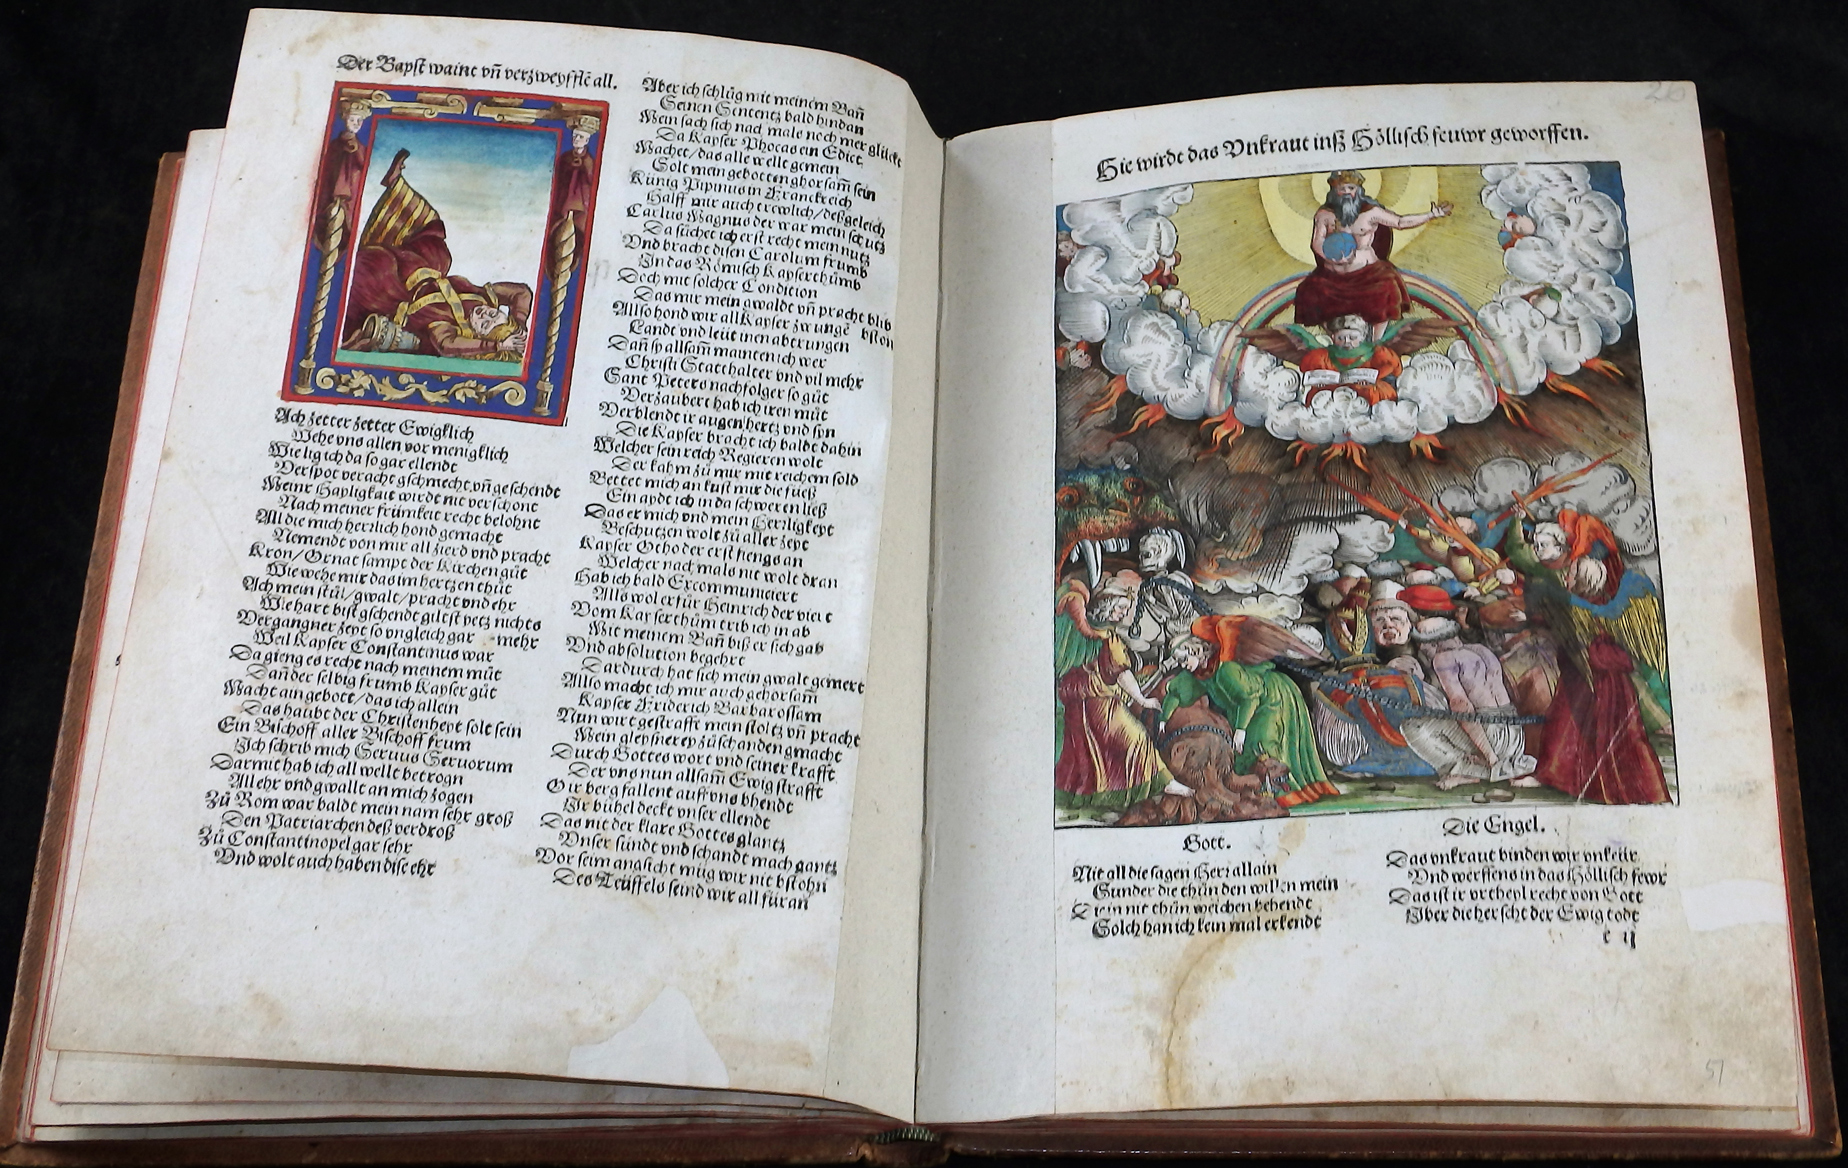 Der Bapst waint vñ verzweyfflẽ all.
Ach zetter zetter Ewigklich
Wehe vns allen vor menigklich
Wie lig ich da so gar ellendt
Verspot veracht gschmecht vñ geschendt
Meinr Hayligkait wirdt nit verschont
Nach meiner frümkeit recht belohnt
All die mich herrlich hond gemacht
Nemendt von mir all zierd vnd pracht
Kron/ Ornat sampt der Kirchen güt
Wie wehe mir das im hertzen thüt
Ach mein stül/ gwalt/ pracht vnd ehr
Wie hart bist gschendt giltst yetz nichts
Vergangner zeyt so vngleich gar mehr
Weil Kayser Constantinus war
Da gieng es recht nach meinem müt
Dañ der selbig frumb Kayser güt
Macht ain gebott/ das ich allein
Das haubt der Christenheyt solt sein
Ein Bischoff aller Bischoff frum
Ich schrib mich Seruus Seruorum
Darmit hab ich all wellt betrogn
All ehr vnd gwallt an mich zogen
Zü Rom war baldt mein nam sehr groß
Den Patriarchen deß verdroß
Zü Constantinopel gar sehr
Vnd wolt auch haben dise ehr
Aber ich schlüg mit meinem Bañ
Seinen Sentents bald hindan
Mein sach sich nach male noch mer glückt
Da Kayser Phocas ein Edict
Machet/ das alle wellt gemein
Solt mein gebotten ghorsam̃ sein
Künig Pipinus in Franckreich
Halff mir auch trewlich/ deßgeleich
Carlus Magnus der war mein schutz
Da süchet ich erst recht mein nutz
Vnd bracht disen Carolum frumb
In das Römisch Kayserthümb
Doch mit solcher Condition
Das mir mein gwalde vñ pracht blib
Allso hond wir all Kayser zwungẽ bston
Landt vnd leüt inen abtrungen
Dañ sy allsam̃ mainten ich wer
Christi Statthalter vnd vil mehr
Sant Peters nachfolger so güt
Verzaubert hab ich iren müt
Verblendt ir augen hertz vnd syn
Die Kayser bracht ich baldt dahin
Welcher sein reich Regieren wolt
Der kahm zü mir mit reichem sold
Bettet mich an kust mir die füeß
Ein aydt ich in da schweren ließ
Das er mich vnd mein Herrligkeyt
Beschutzen wolt zü aller zeyt
Kayser Otho der erst fiengs an
Welcher nach mals nit wolt dran
Hab ich bald Excommuniciert
Alls wol er für Heinrich der viert
Vom Kayserthüm trib ich in ab
Mit meinem Bañ biß er sich gab
Vnd absolution begehrt
Dardurch hat sich mein gwalt gemert
Allso macht ich mir auch gehorsam̃
Kayser Friderich Barbarossam
Nun wirt gestrafft mein stoltz vñ pracht
Mein gleyßnerey züschanden gmacht
Durch Gottes wort vnd seiner krafft
Der vns nun allsam̃ Ewig strafft
O ir berg fallent auff vns bhendt
Ir bühel deckt vnser ellendt
Das nit der klare Gottes glantz
Vnser sündt vnd schandt mach gantz
Vor seim angsicht müg wir nit bstohn
Des Teüffels seind wir all für an
26
Hie wirdt das Vnkraut inß Höllisch feuwr geworffen.
Gott.
Nit all die sagen Herr allain
Sunder die thün den willen mein
Die in nit thün weichen behendt
Solch han ich kein mal erkendt
Die Engel.
Das vnkraut binden wir vnkeür
Vnd werffens in das Höllisch fewr
Das ist ir vrtheyl recht von Gott
Vber die herscht der Ewig todt
c ij
51